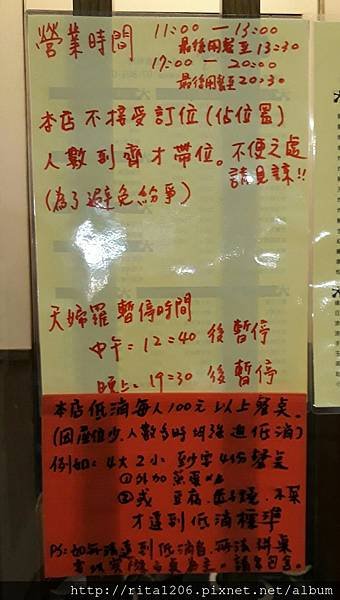 營業時間 11:00-13:00
最後用餐至13:30
17:00-20:00
最後用餐至20:30
本店不接受訂位(佔位置)
人數到齊才帶位。不便之處
請見諒!!
(為了避免紛爭)
天婦羅暫停時間
中午=12:40後暫停
晚上=19:30後暫停
本店低消每人100元以上餐点。
(因座位少,人數多時
低消)
例如:4大2小 至少
4份餐点
①外加蒸蛋x2
②或 豆腐、
才達到低消標準
PS:如無法達到低消者,無法併桌
請多包含。
http://rita1206.pixnet.net/album